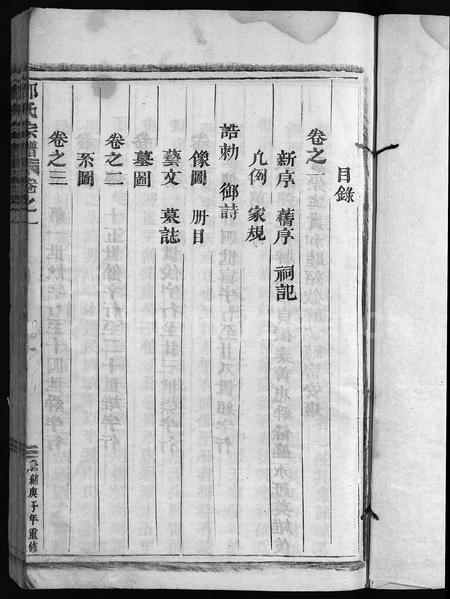 目錄
卷之一
新序 舊序 祠記
凡例 家規
誥勅 御詩
像圖 册目
藝文 墓誌
墓圖
卷之二
系圖
卷之三
氏宗譜 卷之一
光緒庚子年重修